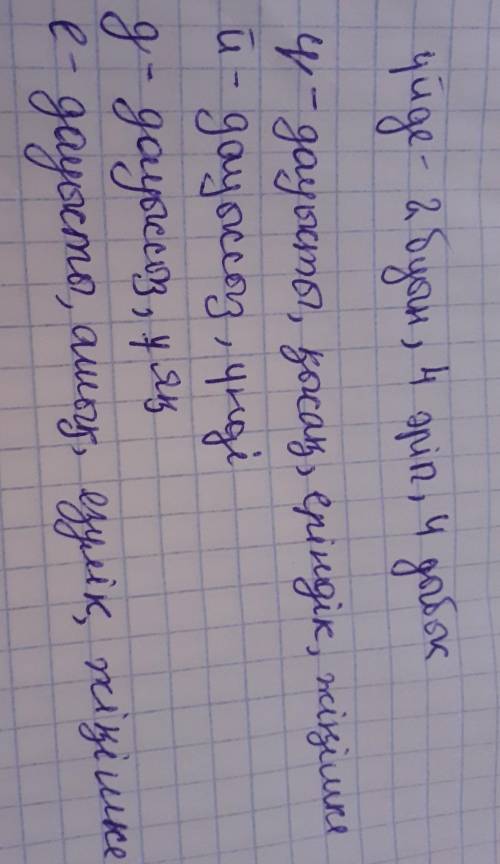 үйде - 2 буын, 4 әріп, 4 дыбыс
ү - дауысты, қысаң, еріндік, жіңішке
й - дауыссыз, үнді
д - дауыссыз, ұяң
е - дауысты, ашық, езулік, жіңішке